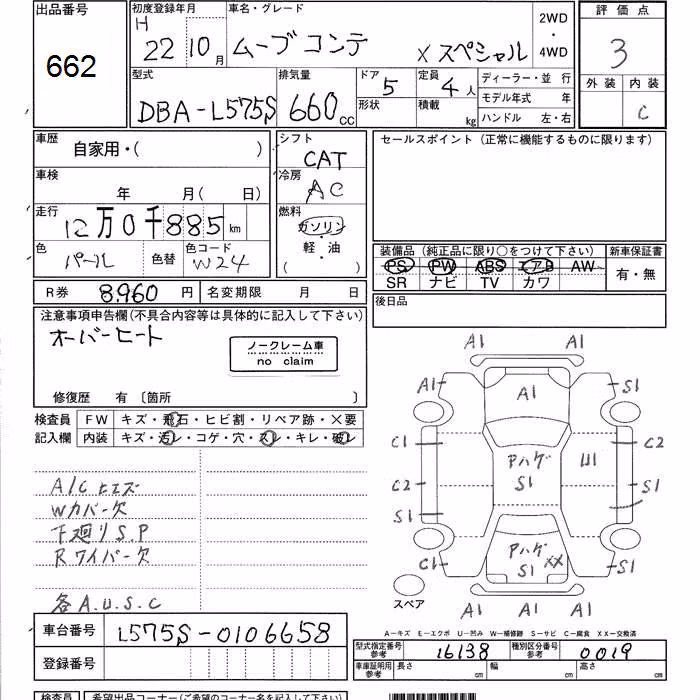 出品番号 初度登録年月 車名・グレード 2WD・4WD 評価点
662 H 22年 10月 ムーブコンテ Xスペシャル 3
型式 排気量 ドア 5 定員 4人 ディーラー・並行 外装 内装
DBA-L575S 660cc 形状 積載 kg モデル年式 年 C
ハンドル 左・右
車歴 自家用・( ) シフト CAT セールスポイント (正常に機能するものに限ります)
車検 年 月(日) 冷房 AC
走行 12万0千885km 燃料 ガソリン・軽・油 ( )
色 パール 色替 色コード W24
装備品 (純正品に限り○をつけて下さい) 新車保証書
PS PW ABS エアB AW 有・無
SR ナビ TV カワ
R券 8,960円 名変期限 月 日 後日品
注意事項申告欄(不具合内容等は具体的に記入して下さい)
オーバーヒート
ノークレーム車
no claim
修復歴 有 〔箇所 〕
検査員 FW キズ・飛石・ヒビ割・リペア跡・×要
記入欄 内装 キズ・汚レ・コゲ・穴・スレ・キレ・破レ
A/C ヒエズ
Wカバー欠
下廻りS.P
Rワイパー欠
各A.U.S.C
A1
A1 A1 S1
C1 C2
Pハゲ S1 U1
C2 S1
S1
Pハゲ S1 XX
C1 S1
A1 A1 A1
スペア
A-キズ E-エクボ U-凹み W-補修跡 S-サビ C-腐食 XX-交換済
車台番号 L575S-0106658
型式指定番号 参考 16138 種別区分番号 参考 0019
登録番号
車庫証明用 参考 長さ 幅 高さ
検査員 希望出品コーナー(ご希望のコーナー名を記入して下さい)